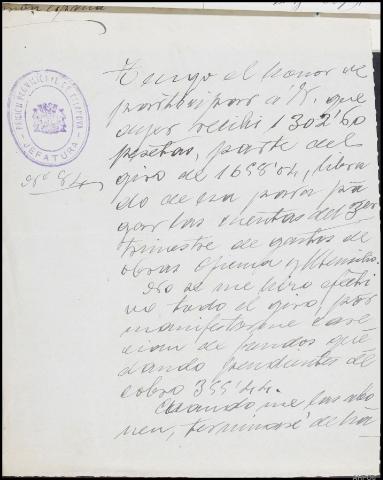 Tengo el honor de
participar a V. que
ayer recibi 1302'60
pesetas, parte del
giro de 1658'04, libra
do de esa para pa
gar las cuentas del 3er
trimestre de gastos de
obras oficina y Utensilio.
No se me hizo efecti
vo todo el giro, por
manifestarme care
cian de fondos que
dando pendientes de
cobro 355'44.
Cuando me las abo
nen, terminaré de
JEFATURA
Nº 84